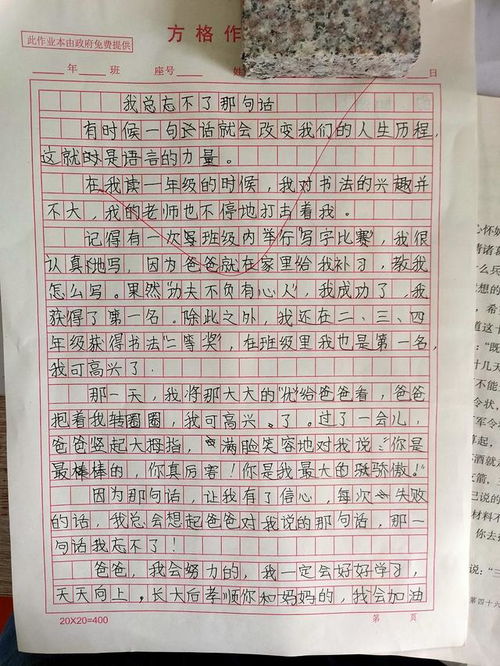 此作业本由政府免费提供
方格作
年 班 座号 姓 日
我总忘不了那句话
有时候一句话就会改变我们的人生历程，
这就是语言的力量。
在我读一年级的时候，我对书法的兴趣并
不大，我的老师也不停地打击着我。
记得有一次班级内举行"写字比赛"，我很
认真地写，因为爸爸就在家里给我补习，教我
怎么写。果然"功夫不负有心人"，我成功了，我
获得了第一名。除此之外，我还在二、三、四
年级获得书法"二等奖"，在班级里我也是第一名，
我可高兴了．
那一天，我将那大大的"优"给爸爸看，爸爸
抱着我转圈圈，我可高兴了。过了一会儿，
爸爸竖起大拇指，满脸笑容地对我说："你是
最棒棒的，你真厉害！你是我最大的骄傲！"
因为那句话，让我有了信心，每次失败
的话，我总会想起爸爸对我说的那句话，那一
句话我忘不了！
爸爸，我会努力的，我一定会好好学习，
天天向上，长大后孝顺你和妈妈的，我会加油
20X20=400 第 页
心怀
请诸
么兵
想的
，希
道这
："既
十几天
不能
令状，
军令
算起，
酒就
支箭，
已说的
材料不
你去
说："三
第四十六